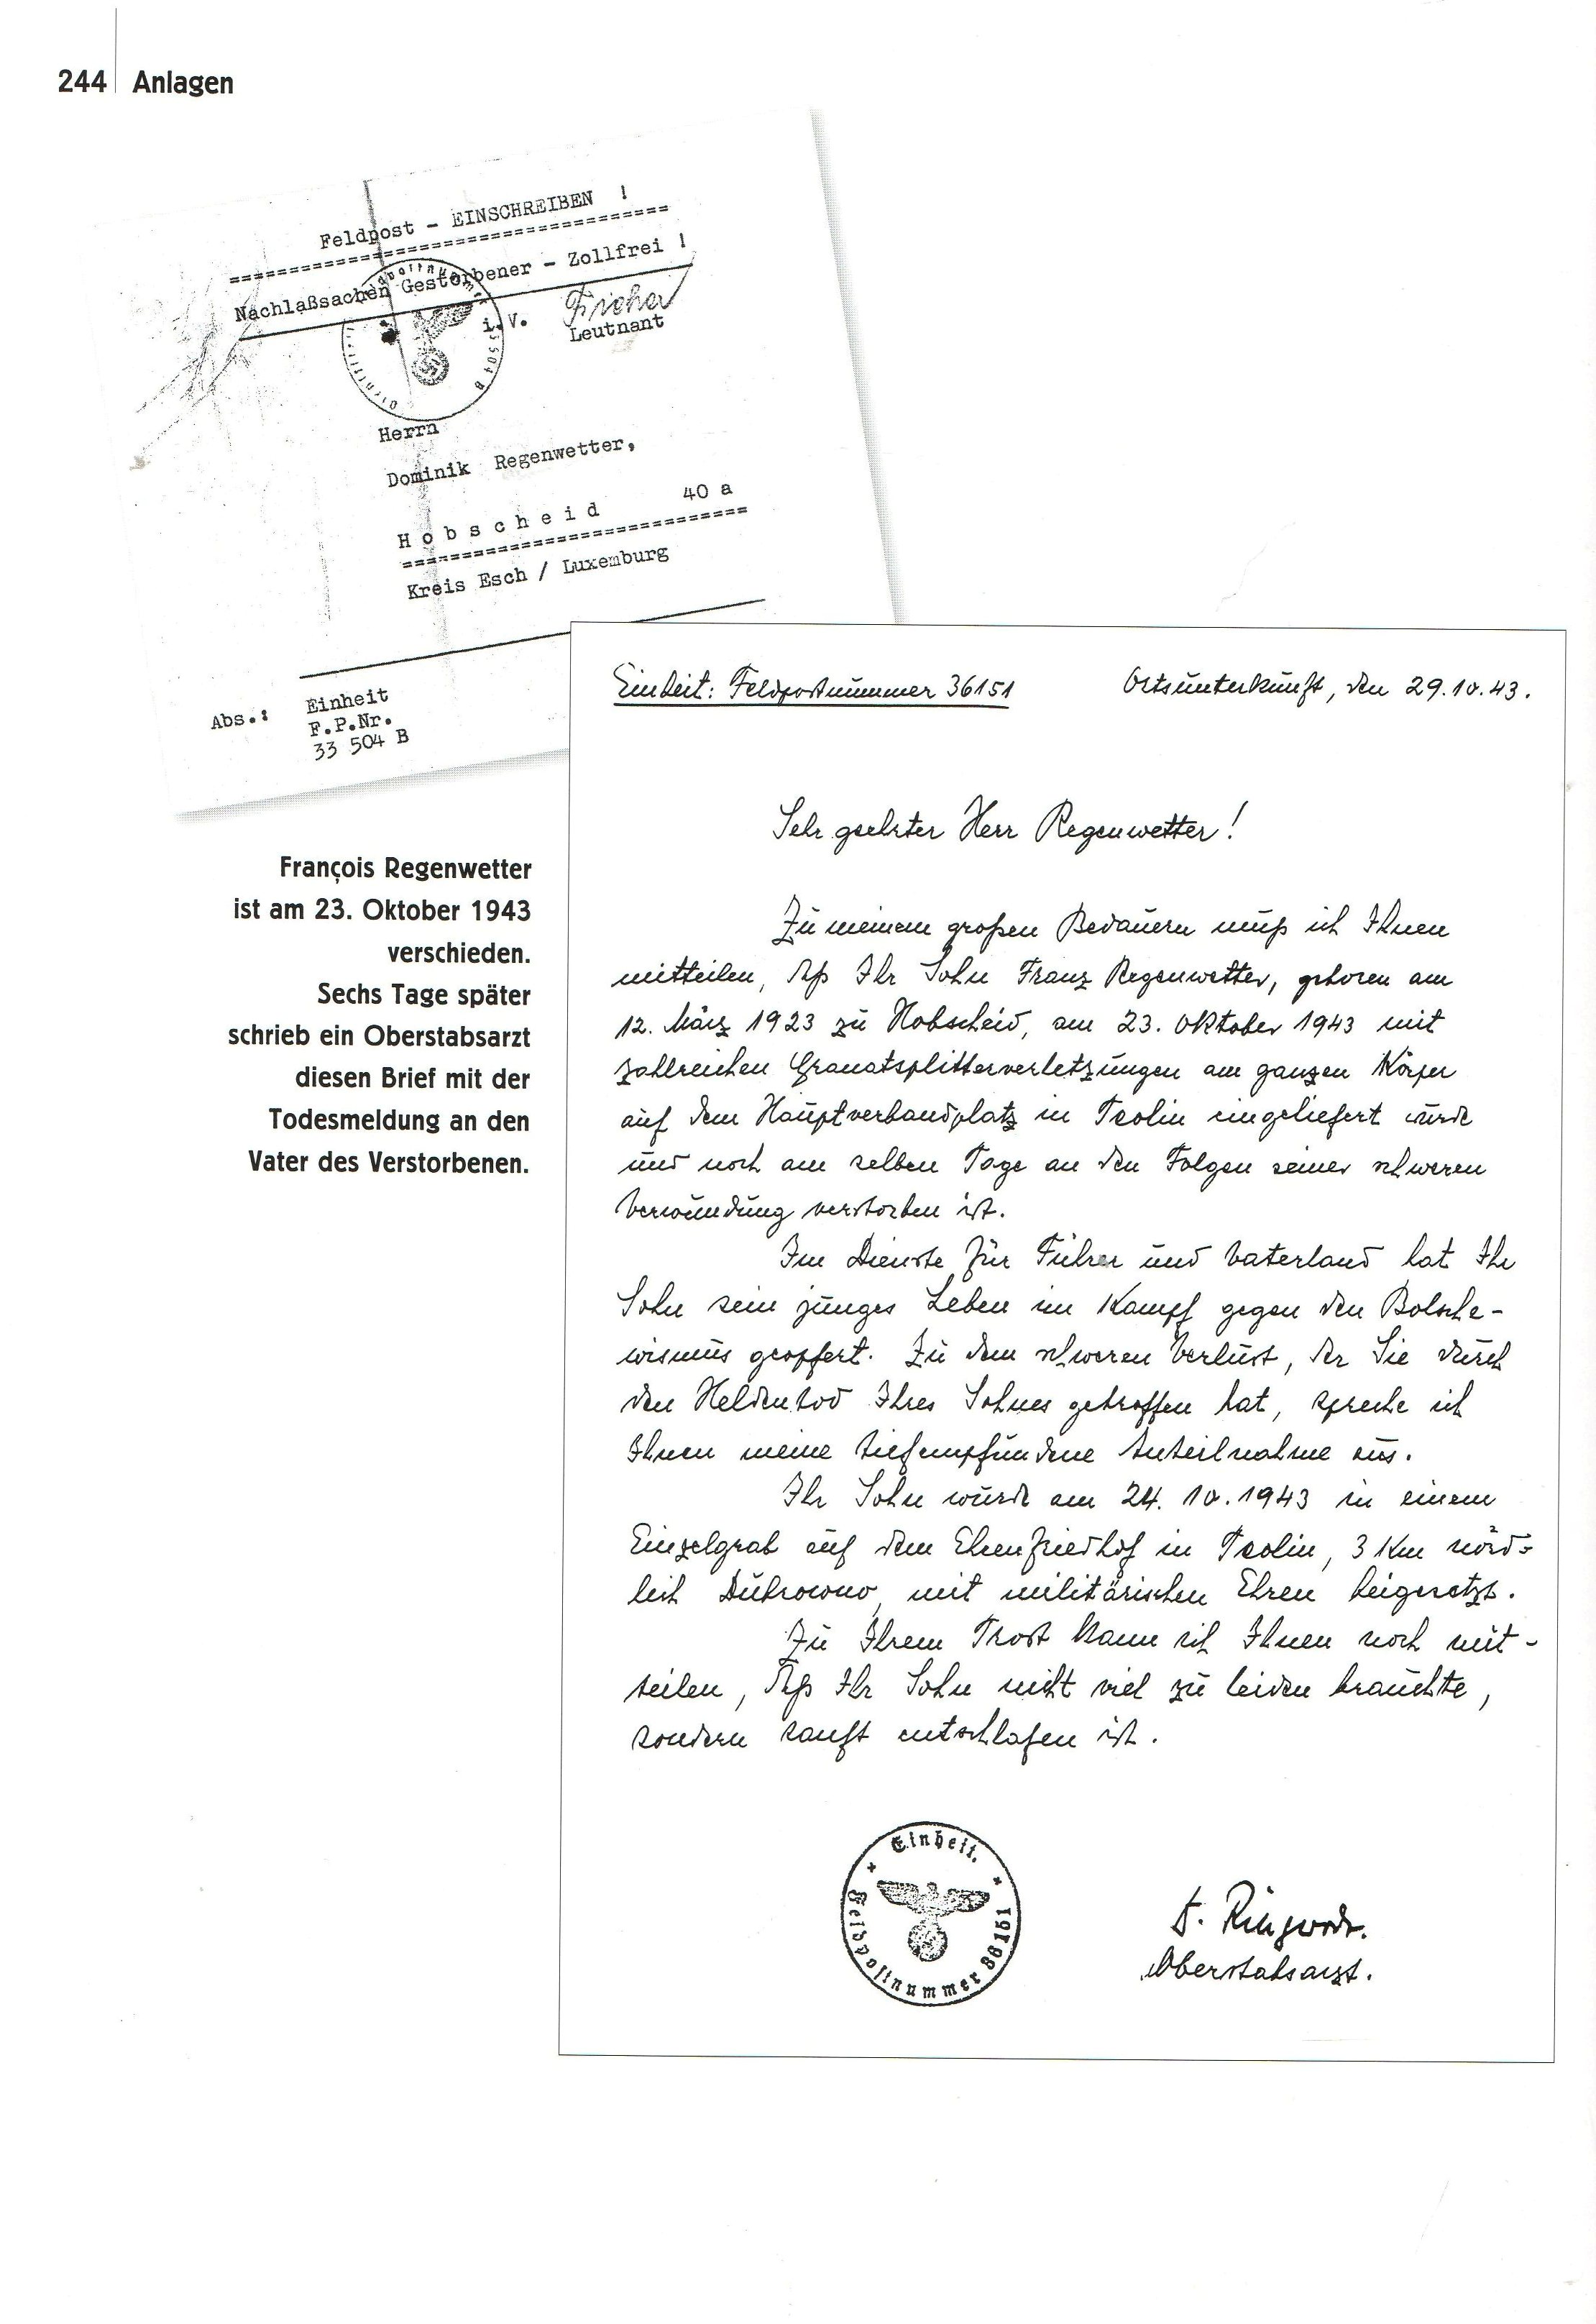 244 Anlagen
Feldpost - EINSCHREIBEN !
Nachlaßsachen Gestorbener - Zollfrei !
i.V.
Leutnant
Herrn
Dominik Regenwetter,
Hobscheid 40 a
Kreis Esch / Luxemburg
Abs.: Einheit
F.P.Nr.
33 504 B
François Regenwetter
ist am 23. Oktober 1943
verschieden.
Sechs Tage später
schrieb ein Oberstabsarzt
diesen Brief mit der
Todesmeldung an den
Vater des Verstorbenen.
Einheit: Feldpostnummer 36151
Ortsunterkunft, den 29.10.43.
Sehr geehrter Herr Regenwetter!
Zu meinem großen Bedauern muß ich Ihnen
mitteilen, daß Ihr Sohn Franz Regenwetter, geboren am
12. März 1923 zu Hobscheid, am 23. Oktober 1943 mit
zahlreichen Granatsplitterverletzungen am ganzen Körper
auf dem Hauptverbandplatz in Teolin eingeliefert wurde
und noch am selben Tage an den Folgen seiner schweren
Verwundung verstorben ist.
Im Dienste für Führer und Vaterland hat Ihr
Sohn sein junges Leben im Kampf gegen den Bolsche-
wismus geopfert. Zu dem schweren Verlust, der Sie durch
den Heldentod Ihres Sohnes getroffen hat, spreche ich
Ihnen meine tiefempfundene Anteilnahme aus.
Ihr Sohn wurde am 24.10.1943 in einem
Einzelgrab auf dem Ehrenfriedhof in Teolin, 3 Km nörd-
lich Dubrowno, mit militärischen Ehren beigesetzt.
Zu Ihrem Trost kann ich Ihnen noch mit-
teilen, daß Ihr Sohn nicht viel zu leiden brauchte,
sondern sanft entschlafen ist.
Einheit.
Feldpostnummer 36151
Oberstabsarzt.